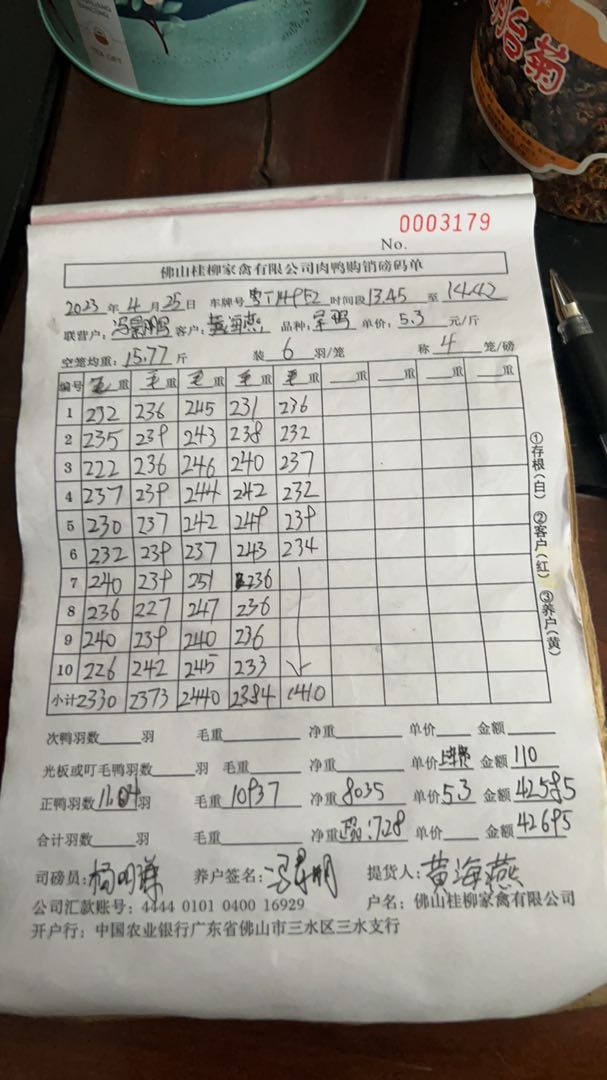 脂菊
0003179
No.
佛山桂柳家禽有限公司肉鸭购销磅码单
2023年4月25日 车牌号 粤T14P52 时间段 13.45 至 14.42
联营户: 客户:黄海燕 品种: 单价:5.3元/斤
空笼均重:15.77斤 装6羽/笼 称4笼/磅
编号 毛重 毛重 毛重 毛重 毛重 重 重 重 重
1 232 236 245 231 236
2 235 239 243 238 232
3 222 236 246 240 237
4 237 239 244 242 232
5 230 237 242 249 239
6 232 239 237 243 234
7 240 239 251 236
8 236 227 247 236
9 240 239 240 236
10 226 242 245 233
小计 2330 2373 2440 2384 1410
次鸭羽数 羽 毛重 净重 单价 金额
光板或叮毛鸭羽数 羽 毛重 净重 单价 金额 110
正鸭羽数 1104羽 毛重 10937 净重 8035 单价 5.3 金额 42585
合计羽数 羽 毛重 净重 :7.28 单价 金额 42695
司磅员: 养户签名: 提货人:黄海燕
公司汇款账号:4444 0101 0400 16929 户名:佛山桂柳家禽有限公司
开户行:中国农业银行广东省佛山市三水区三水支行
①存根(白) ②客户(红) ③养户(黄)